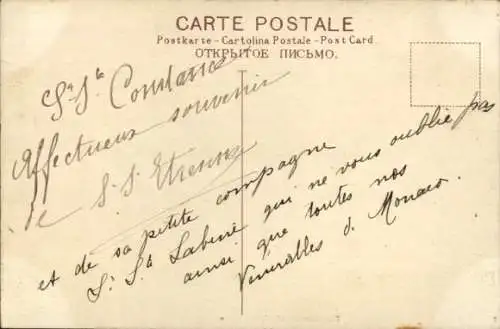 CARTE POSTALE
Postkarte - Cartolina Postale - Post Card
ОТКРЫТОЕ ПИСЬМО.
Sr. Ste Constance
Affectueux souvenir
de S. S. Etienne
et de sa petite compagne
Sr. Ste Sabine qui ne vous oublie pas
ainsi que toutes nos
Vénérables d. Monaco.